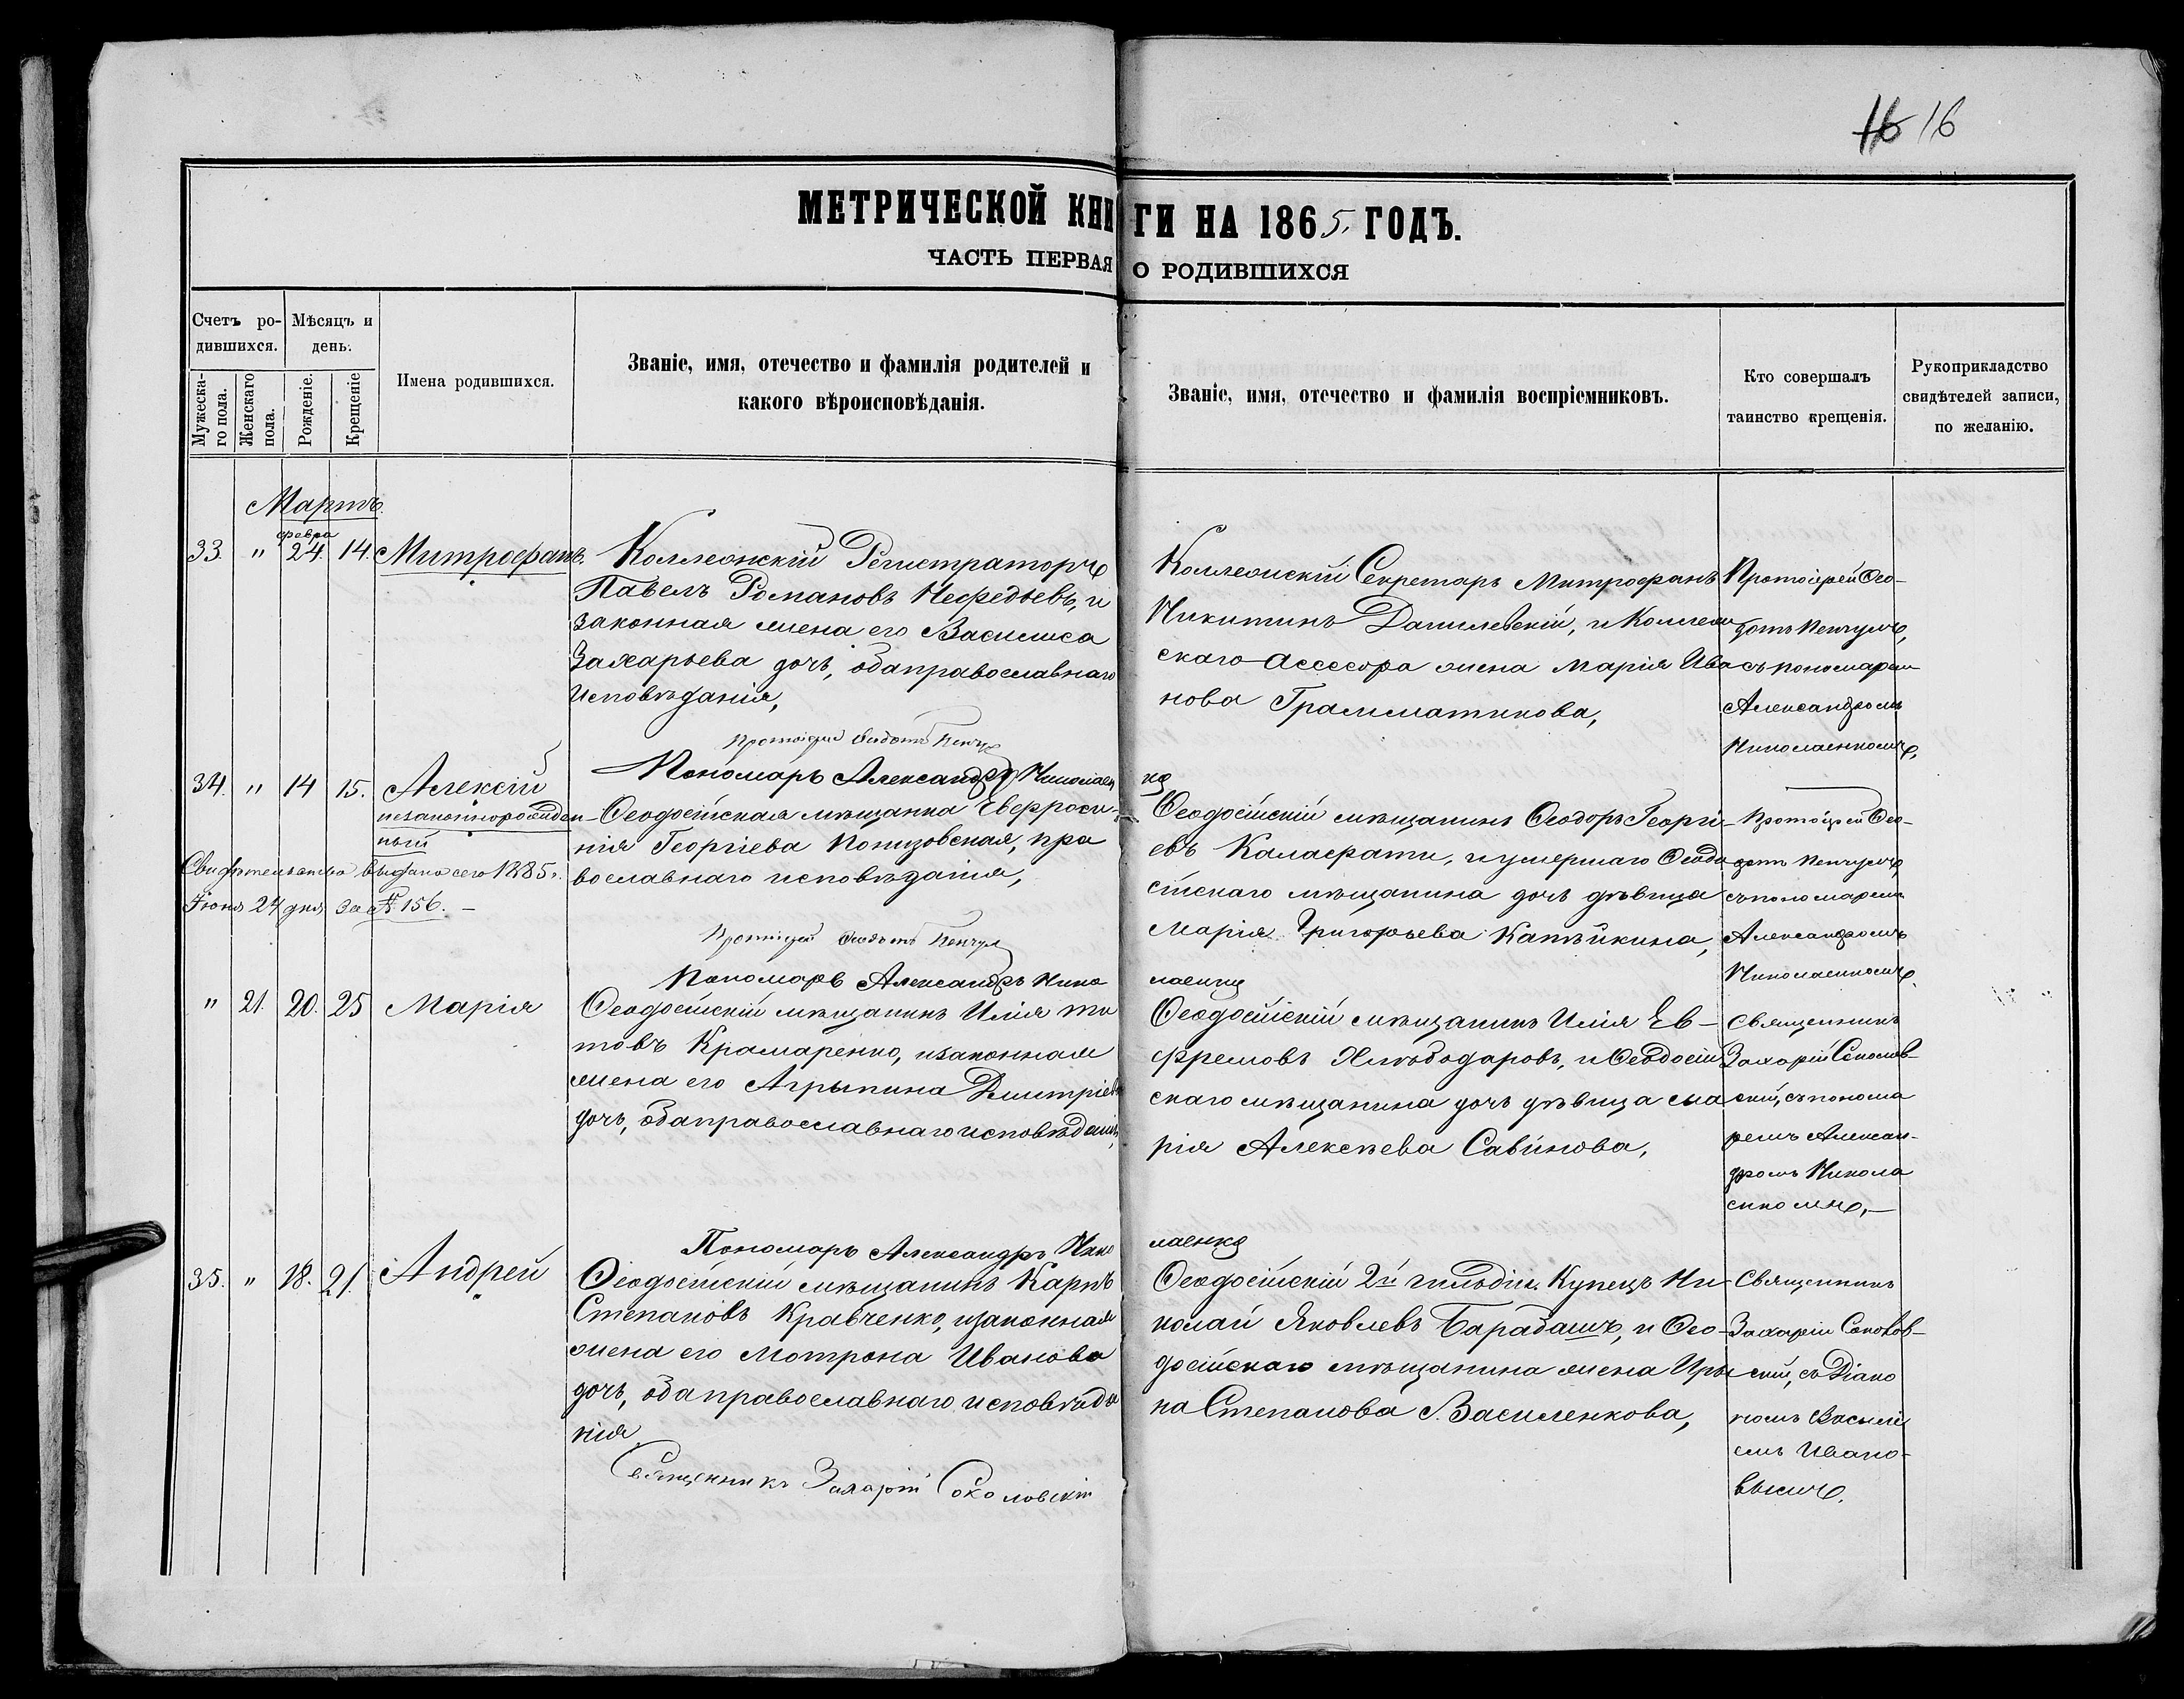 16 16
МЕТРИЧЕСКОЙ КНИГИ НА 1865. ГОДЪ.
ЧАСТЬ ПЕРВАЯ О РОДИВШИХСЯ
Счетъ ро-
дившихся.
Мужеска-
го пола.
Женскаго
пола.
Мѣсяцъ и
день.
Рожденіе.
Крещеніе
Имена родившихся.
Званіе, имя, отечество и фамилія родителей и
какого вѣроисповѣданія.
Званіе, имя, отечество и фамилія воспріемниковъ.
Кто совершалъ
таинство крещенія.
Рукоприкладство
свидѣтелей записи,
по желанію.
Мартъ.
февра
33. " 24. 14. Митрофанъ.
Коллежскій Регистраторъ
Павелъ Романовъ Нефедьевъ, и
законная жена его Василиса
Захарьева дочь, оба православнаго
исповѣданія,
Коллежскій Секретарь Митрофанъ
Никитинъ Данилевскій, и Коллеж
скаго Ассесора жена Марія Ива
нова Грамматикова,
Протоіерей Ѳео-
дотъ Пенчулъ,
съ пономарем
Александромъ
Николаенкомъ,
Протоіерей Ѳеодотъ Пенчул
Пономарь Александръ Николаен
ко
34. " 14 15. Алексій
незаконнорожден-
ный
Свидѣтельство выдано сего 1885 г.
Іюня 24 дня за № 156. –
Ѳеодосійская мѣщанка Евфроси-
нія Георгіева Понизовская, пра
вославнаго исповѣданія,
Ѳеодосійскій мѣщанинъ Ѳеодоръ Георгі-
евъ Каласрати, и умершаго Ѳеодо
сійскаго мѣщанина дочь дѣвица
Марія Григорьева Катѣйкина,
Протоіерей Ѳео-
дотъ Пенчулъ,
съ пономарем
Александромъ
Николаенкомъ,
Протоіерей Ѳеодотъ Пенчул
Пономарь Александръ Нико
лаенко
" 21. 20. 25 Марія
Ѳеодосійскій мѣщанинъ Илія Ти
товъ Крамаренко, и законная
жена его Агрыпина Дмитріева
дочь, оба православнаго исповѣданія,
Ѳеодосійскій мѣщанинъ Илія Ев-
фремовъ Хлѣбодаровъ, и Ѳеодосій
скаго мѣщанина дочь дѣвица Ма
рія Алексѣева Савинова,
Священникъ
Захарій Соколов-
скій, съ понома
ремъ Алексан-
дромъ Никола
енкомъ, –
Пономарь Александръ Нико
лаенко
35. " 18. 21. Андрей
Ѳеодосійскій мѣщанинъ Карпъ
Степановъ Кравченко, и законная
жена его Мотрона Иванова
дочь, оба православнаго исповѣда
нія
Ѳеодосійскій 2й гильдіи Купецъ Ни-
колай Яковлевъ Барабашъ, и Ѳео-
досійскаго мѣщанина жена Иры
на Степанова Василенкова,
Священникъ
Захарій Соколов-
скій, съ Діако
номъ Василі
емъ Ивано-
вымъ.
Священникъ Захарій Соколовскій